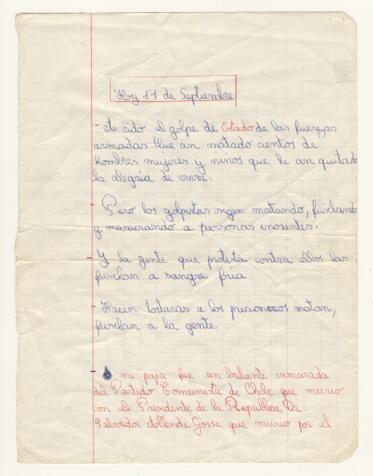 Hoy 11 de Septiembre
- A sido el golpe de Estado de las fuerzas
armadas que an matado cientos de
hombres mujeres y ninos que le an quitado
la alegria de vivir.
- Pero los golpistas sigen matando, fusilando
y masacrando a personas inosentes.
- Y la gente que protesta contra ellos las
fusilan a sangre fria
- Hacen torturas a los prisioneros matan,
fusilan a la gente.
- mi papa fue un baliente camarada
del Partido Comunista de Chile que murio
con el Presidente de la Republica Dr.
Salvador Allende que murio por el